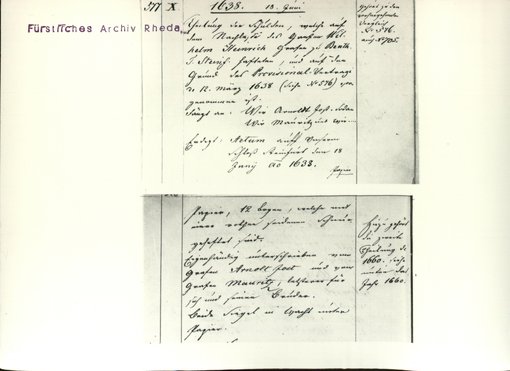 Fürstliches Archiv Rheda
577 X. 1638. 18. Juni
Theilung der Schulden, welche auf
dem Nachlasse des Grafen Wil-
helm Heinrich Grafen zu Benth.
T. Steinf. hafteten, und auf den
Grund des Provisional-Vertrags
12. März 1638 (siehe No 576) vor-
genommen ist.
Fängt an: Wir Arnoldt Jost
Wir Mauritz und wir
Endigt: Actum auff Unserm
Schloß Steinfurt den 18
Junij ao 1638.
Papier
gehört zu dem
vorhergehenden
Vergleich
No 576.
auch No 705.
Papier, 12 bogen, welche mit
einer rothen seidenen Schnur
geheftet sind.
Eigenhändig unterschrieben vom
Grafen Arnold Jost und vom
Grafen Mauritz, letzterer für
sich und seinen Bruder.
Beide Siegel in Wachs unter
Papier.
Hiezu gehört
die zweite
Theilung de
1660. siehe
unter dem
Jahr 1660.